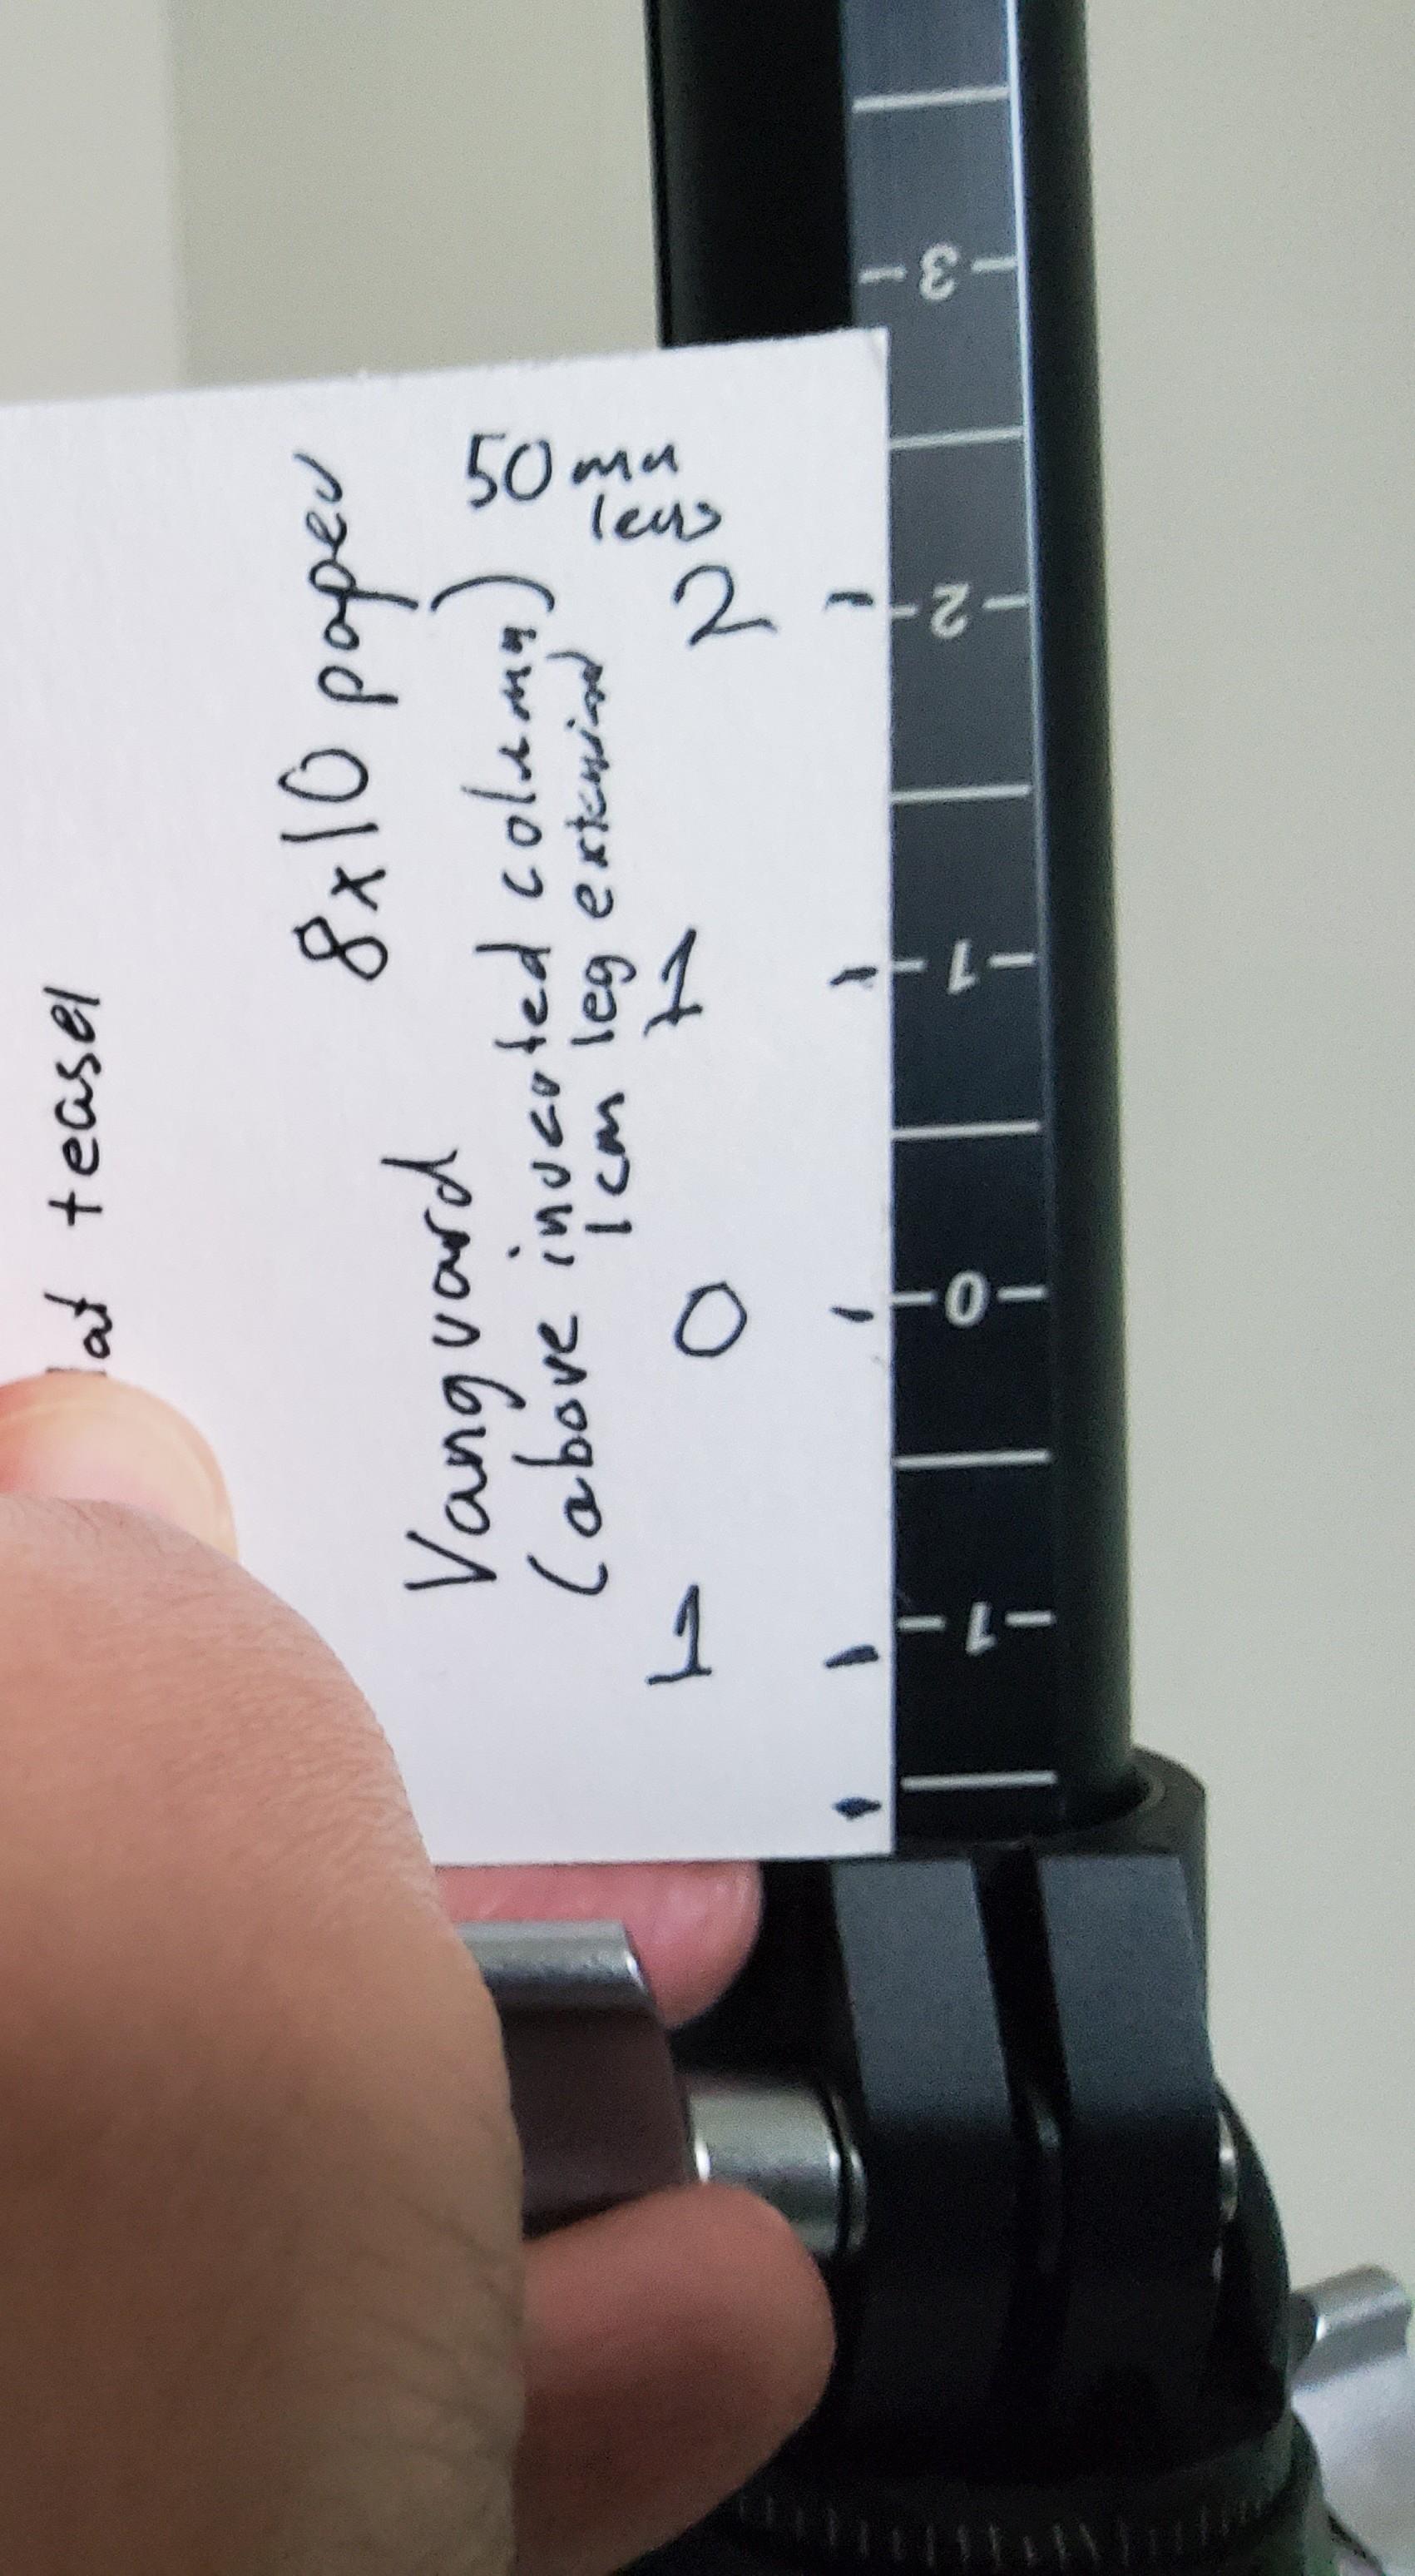 8x10 paper
50mm
lens
Vanguard
(above inverted column)
1cm leg extension)
1 0 1 2
at teasel
-3-
-2-
-1-
-0-
-1-